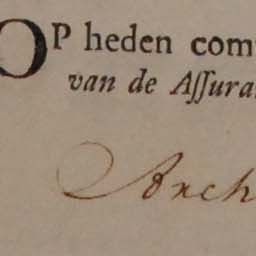 OP heden com
van de Aſſura
Anch